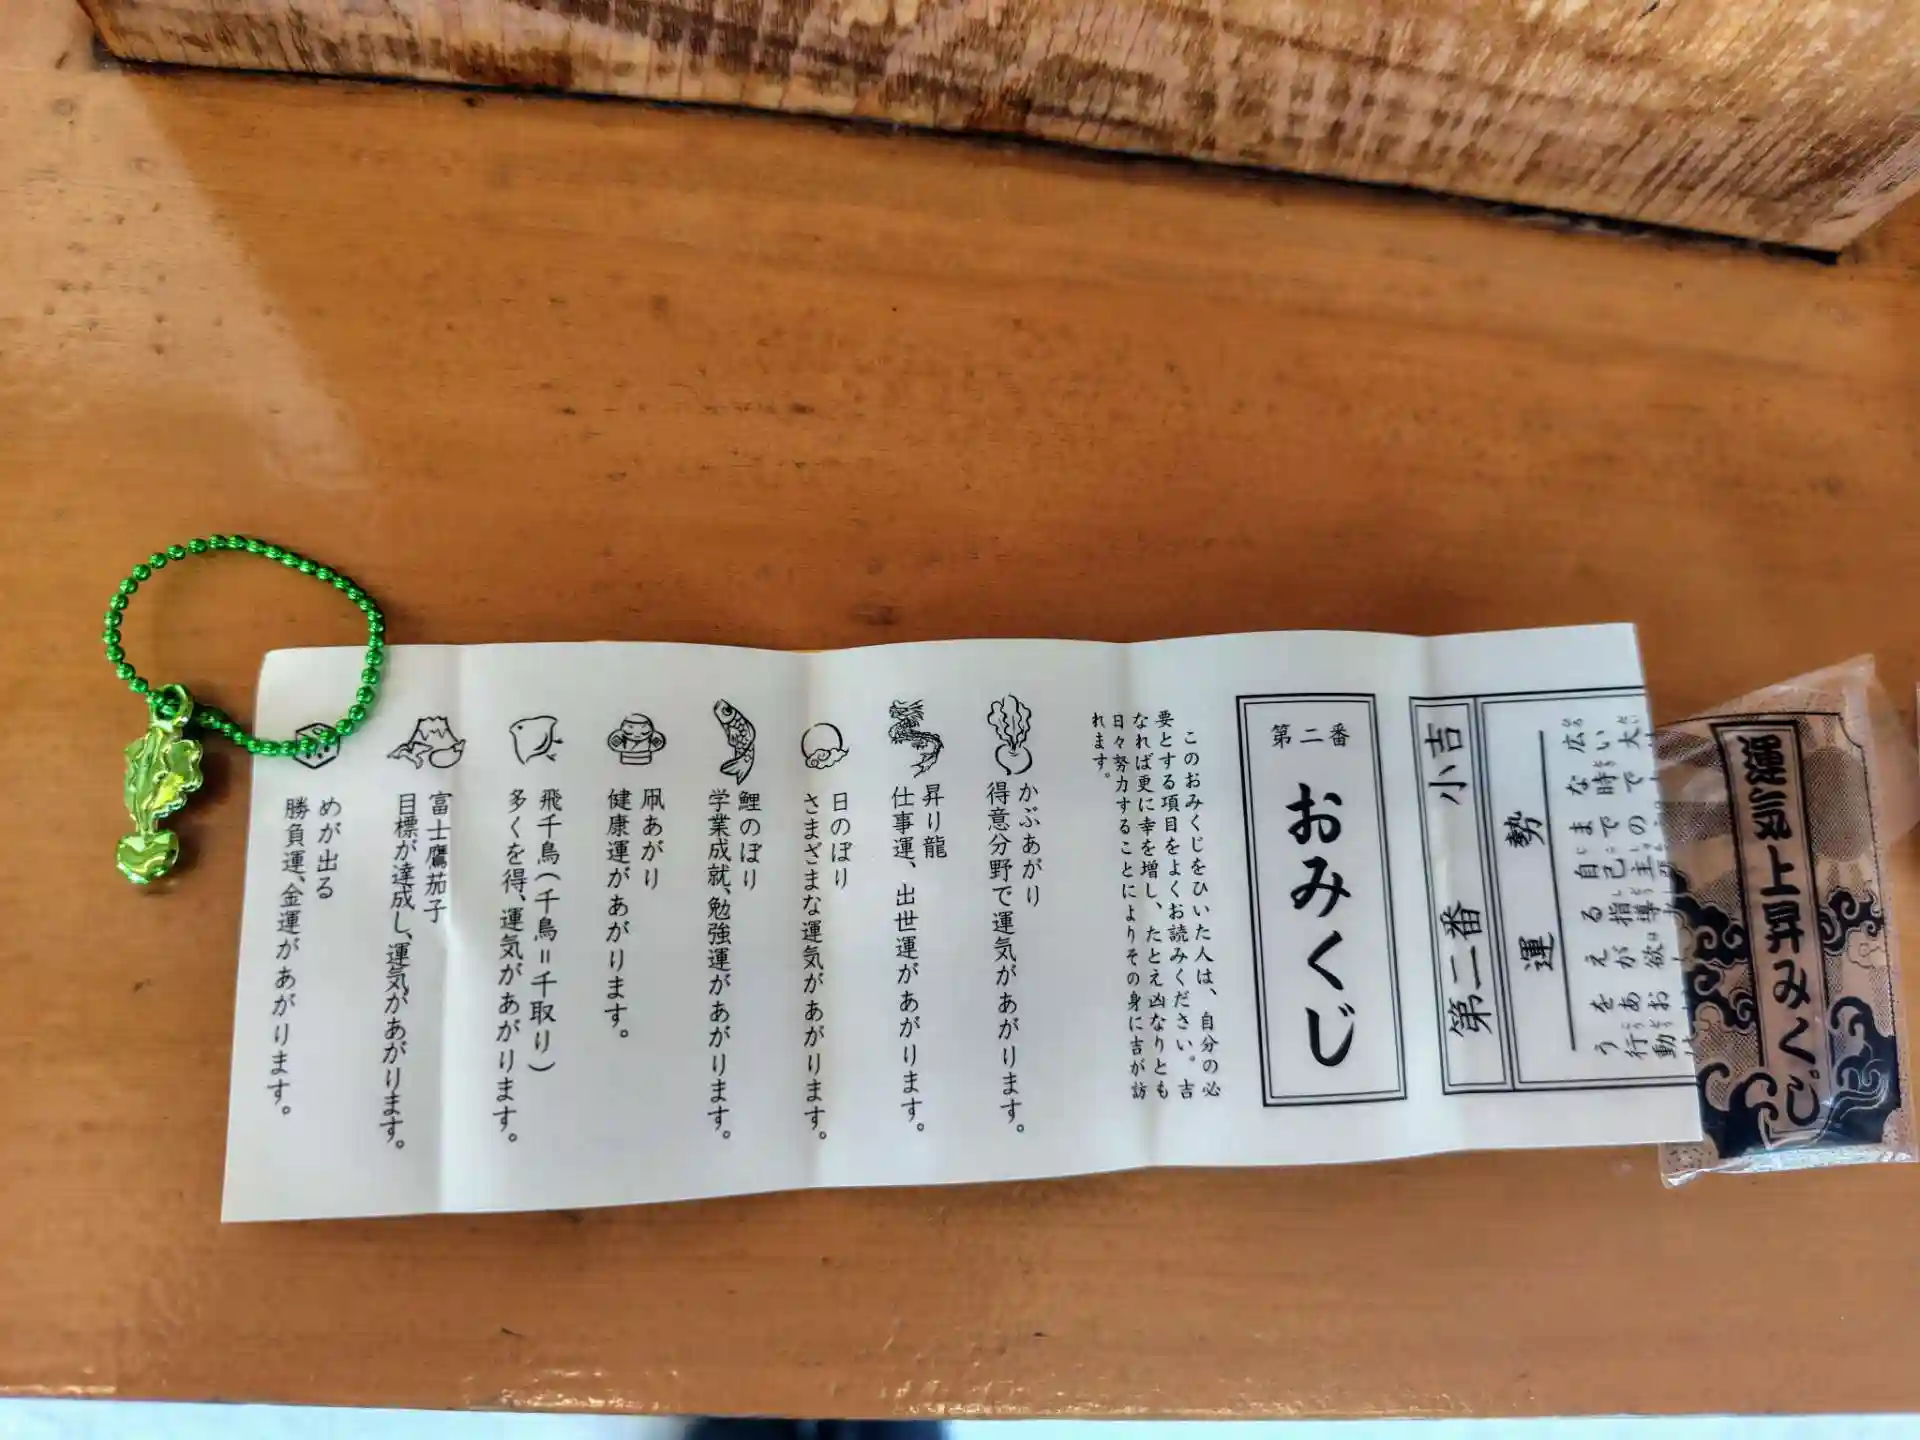 運気上昇みくじ
勢運
小吉 第二番
第二番
おみくじ
このおみくじをひいた人は、自分の必
要とする項目をよくお読みください。吉
なれば更に幸を増し、たとえ凶なりとも
日々努力することによりその身に吉が訪
れます。
かぶあがり
得意分野で運気があがります。
昇り龍
仕事運、出世運があがります。
日のぼり
さまざまな運気があがります。
鯉のぼり
学業成就、勉強運があがります。
凧あがり
健康運があがります。
飛千鳥(千鳥=千取り)
多くを得、運気があがります。
富士鷹茄子
目標が達成し、運気があがります。
めが出る
勝負運、金運があがります。